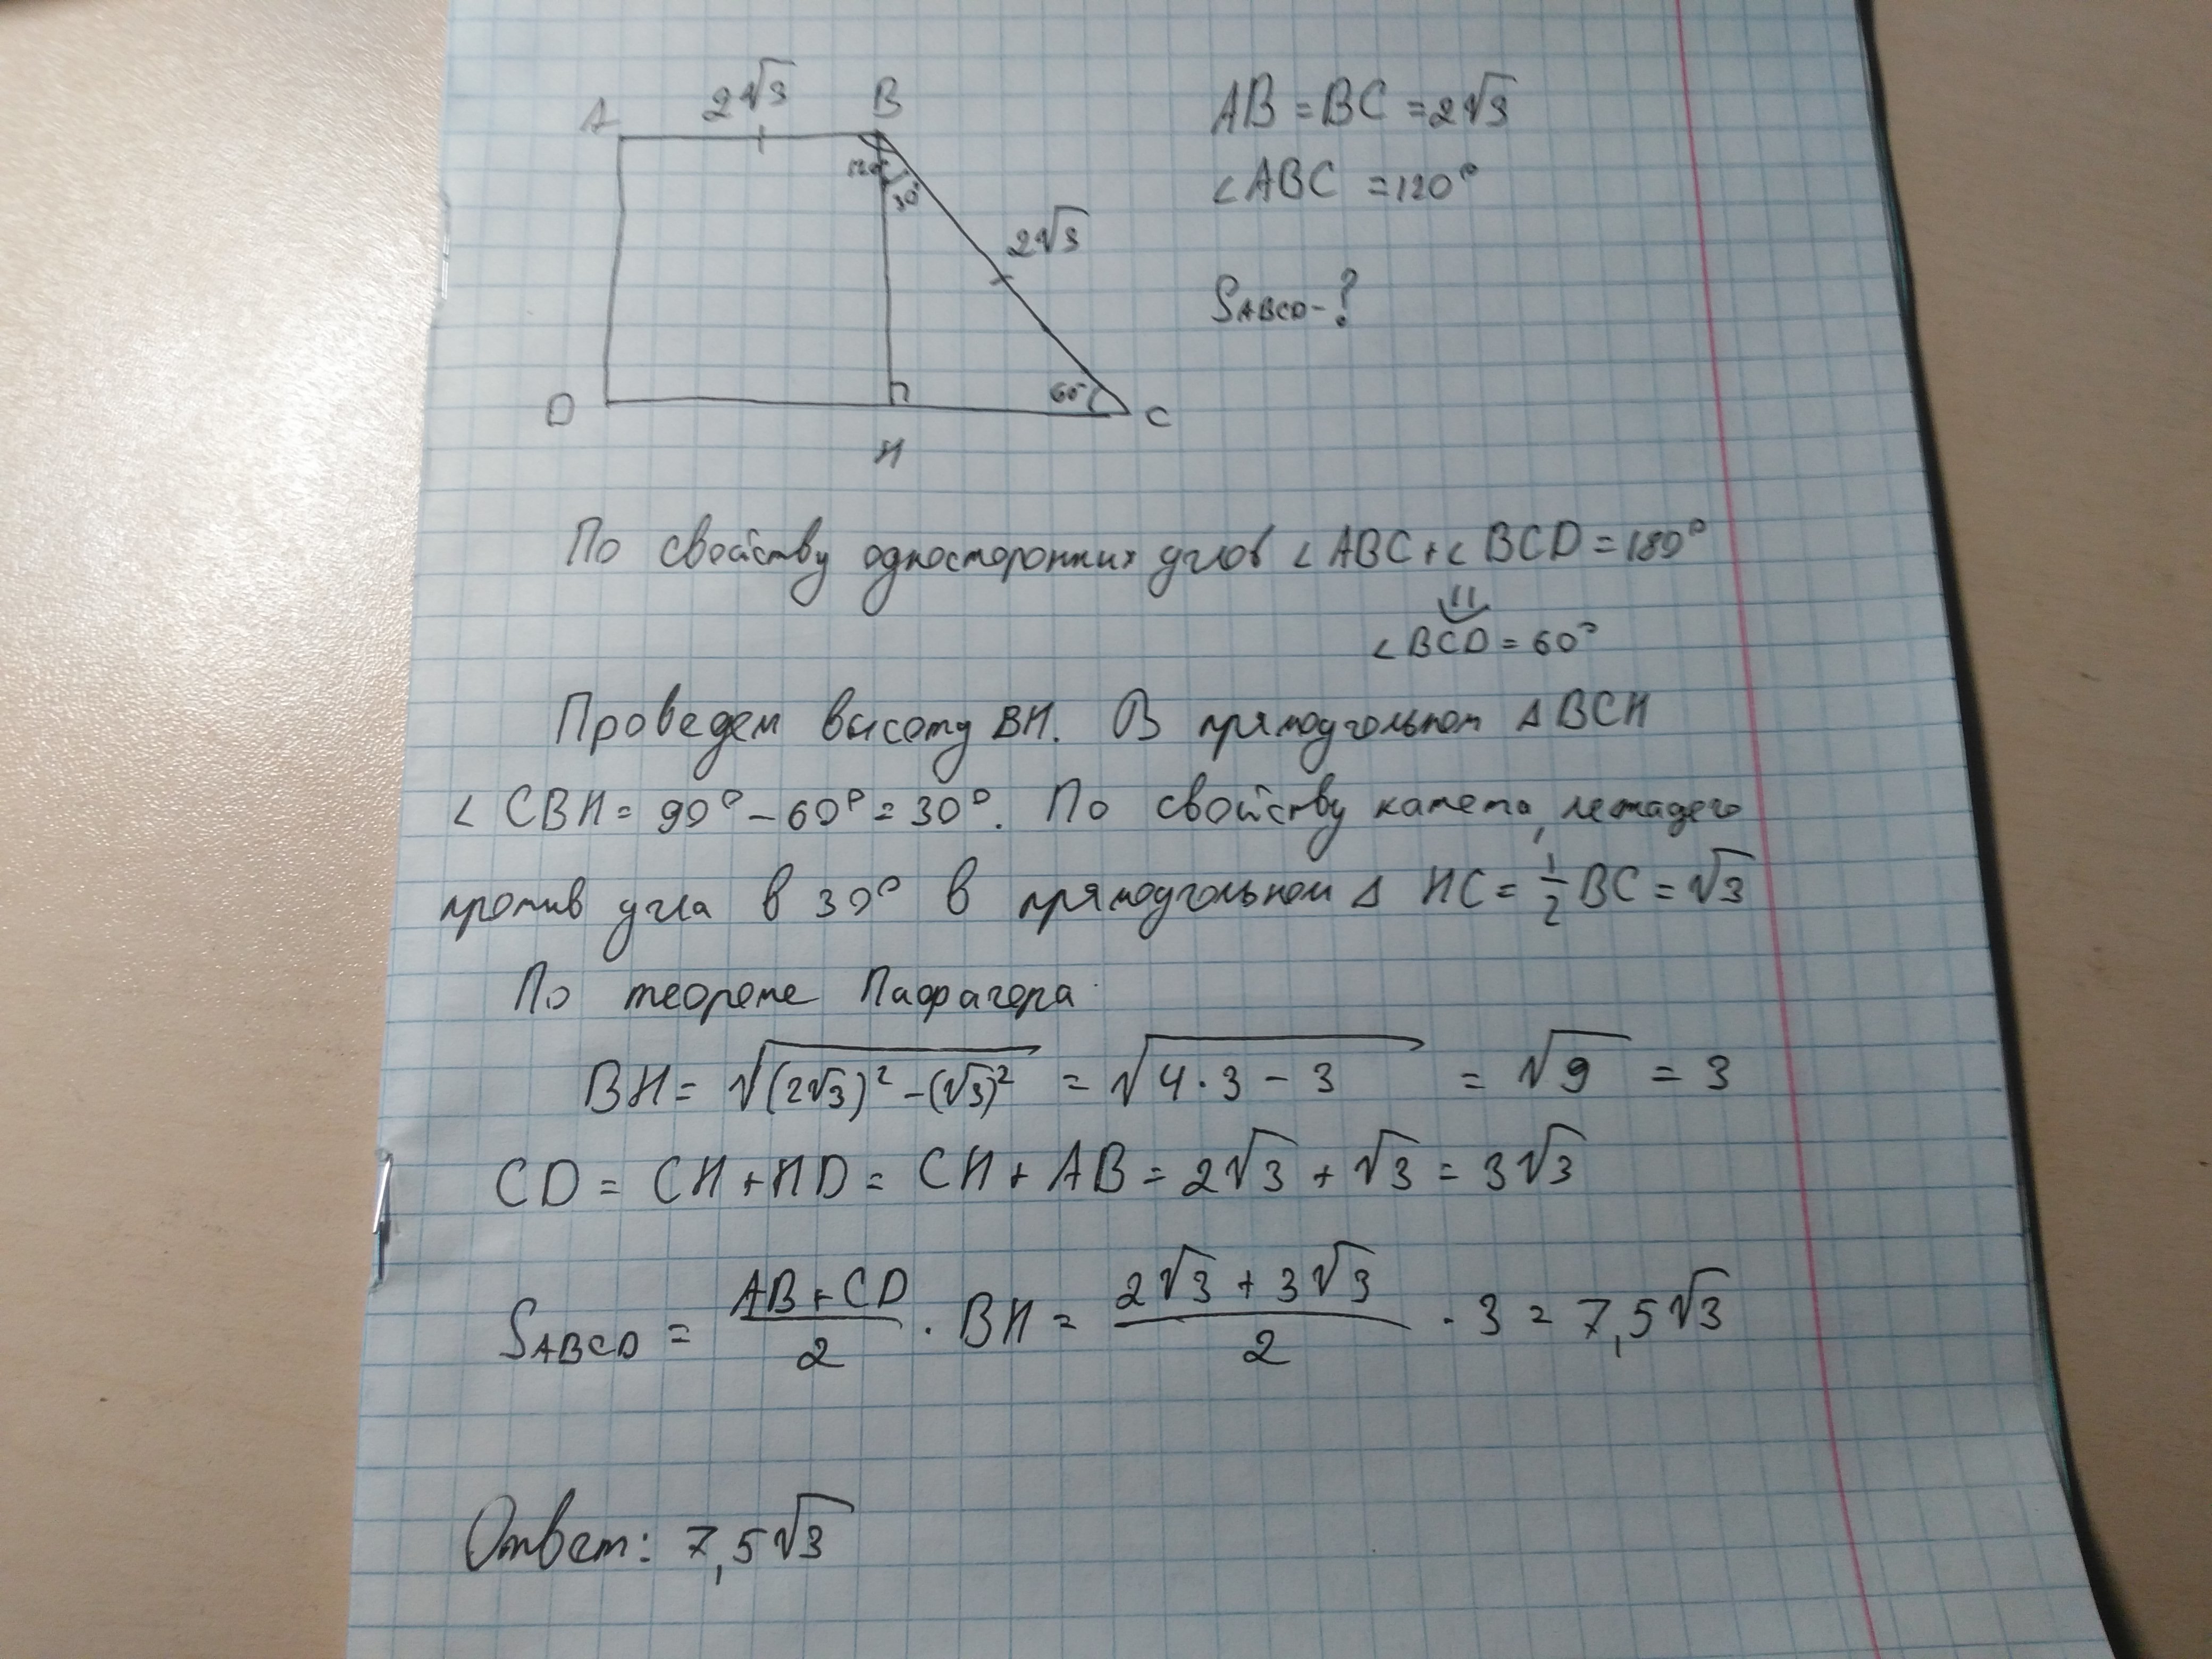 A 2√3 B
AB = BC = 2√3
120° 30°
∠ABC = 120°
2√3
SABCD - ?
60°
D H C
По свойству односторонних углов ∠ABC + ∠BCD = 180°
⇓
∠BCD = 60°
Проведем высоту BH. В прямоугольном △BCH
∠CBH = 90° - 60° = 30°. По свойству катета, лежащего
против угла в 30° в прямоугольном △ HC = 1/2 BC = √3
По теореме Пифагора
BH = √((2√3)² - (√3)²) = √(4·3 - 3) = √9 = 3
CD = CH + HD = CH + AB = 2√3 + √3 = 3√3
SABCD = (AB + CD)/2 · BH = (2√3 + 3√3)/2 · 3 = 7,5√3
Ответ: 7,5√3